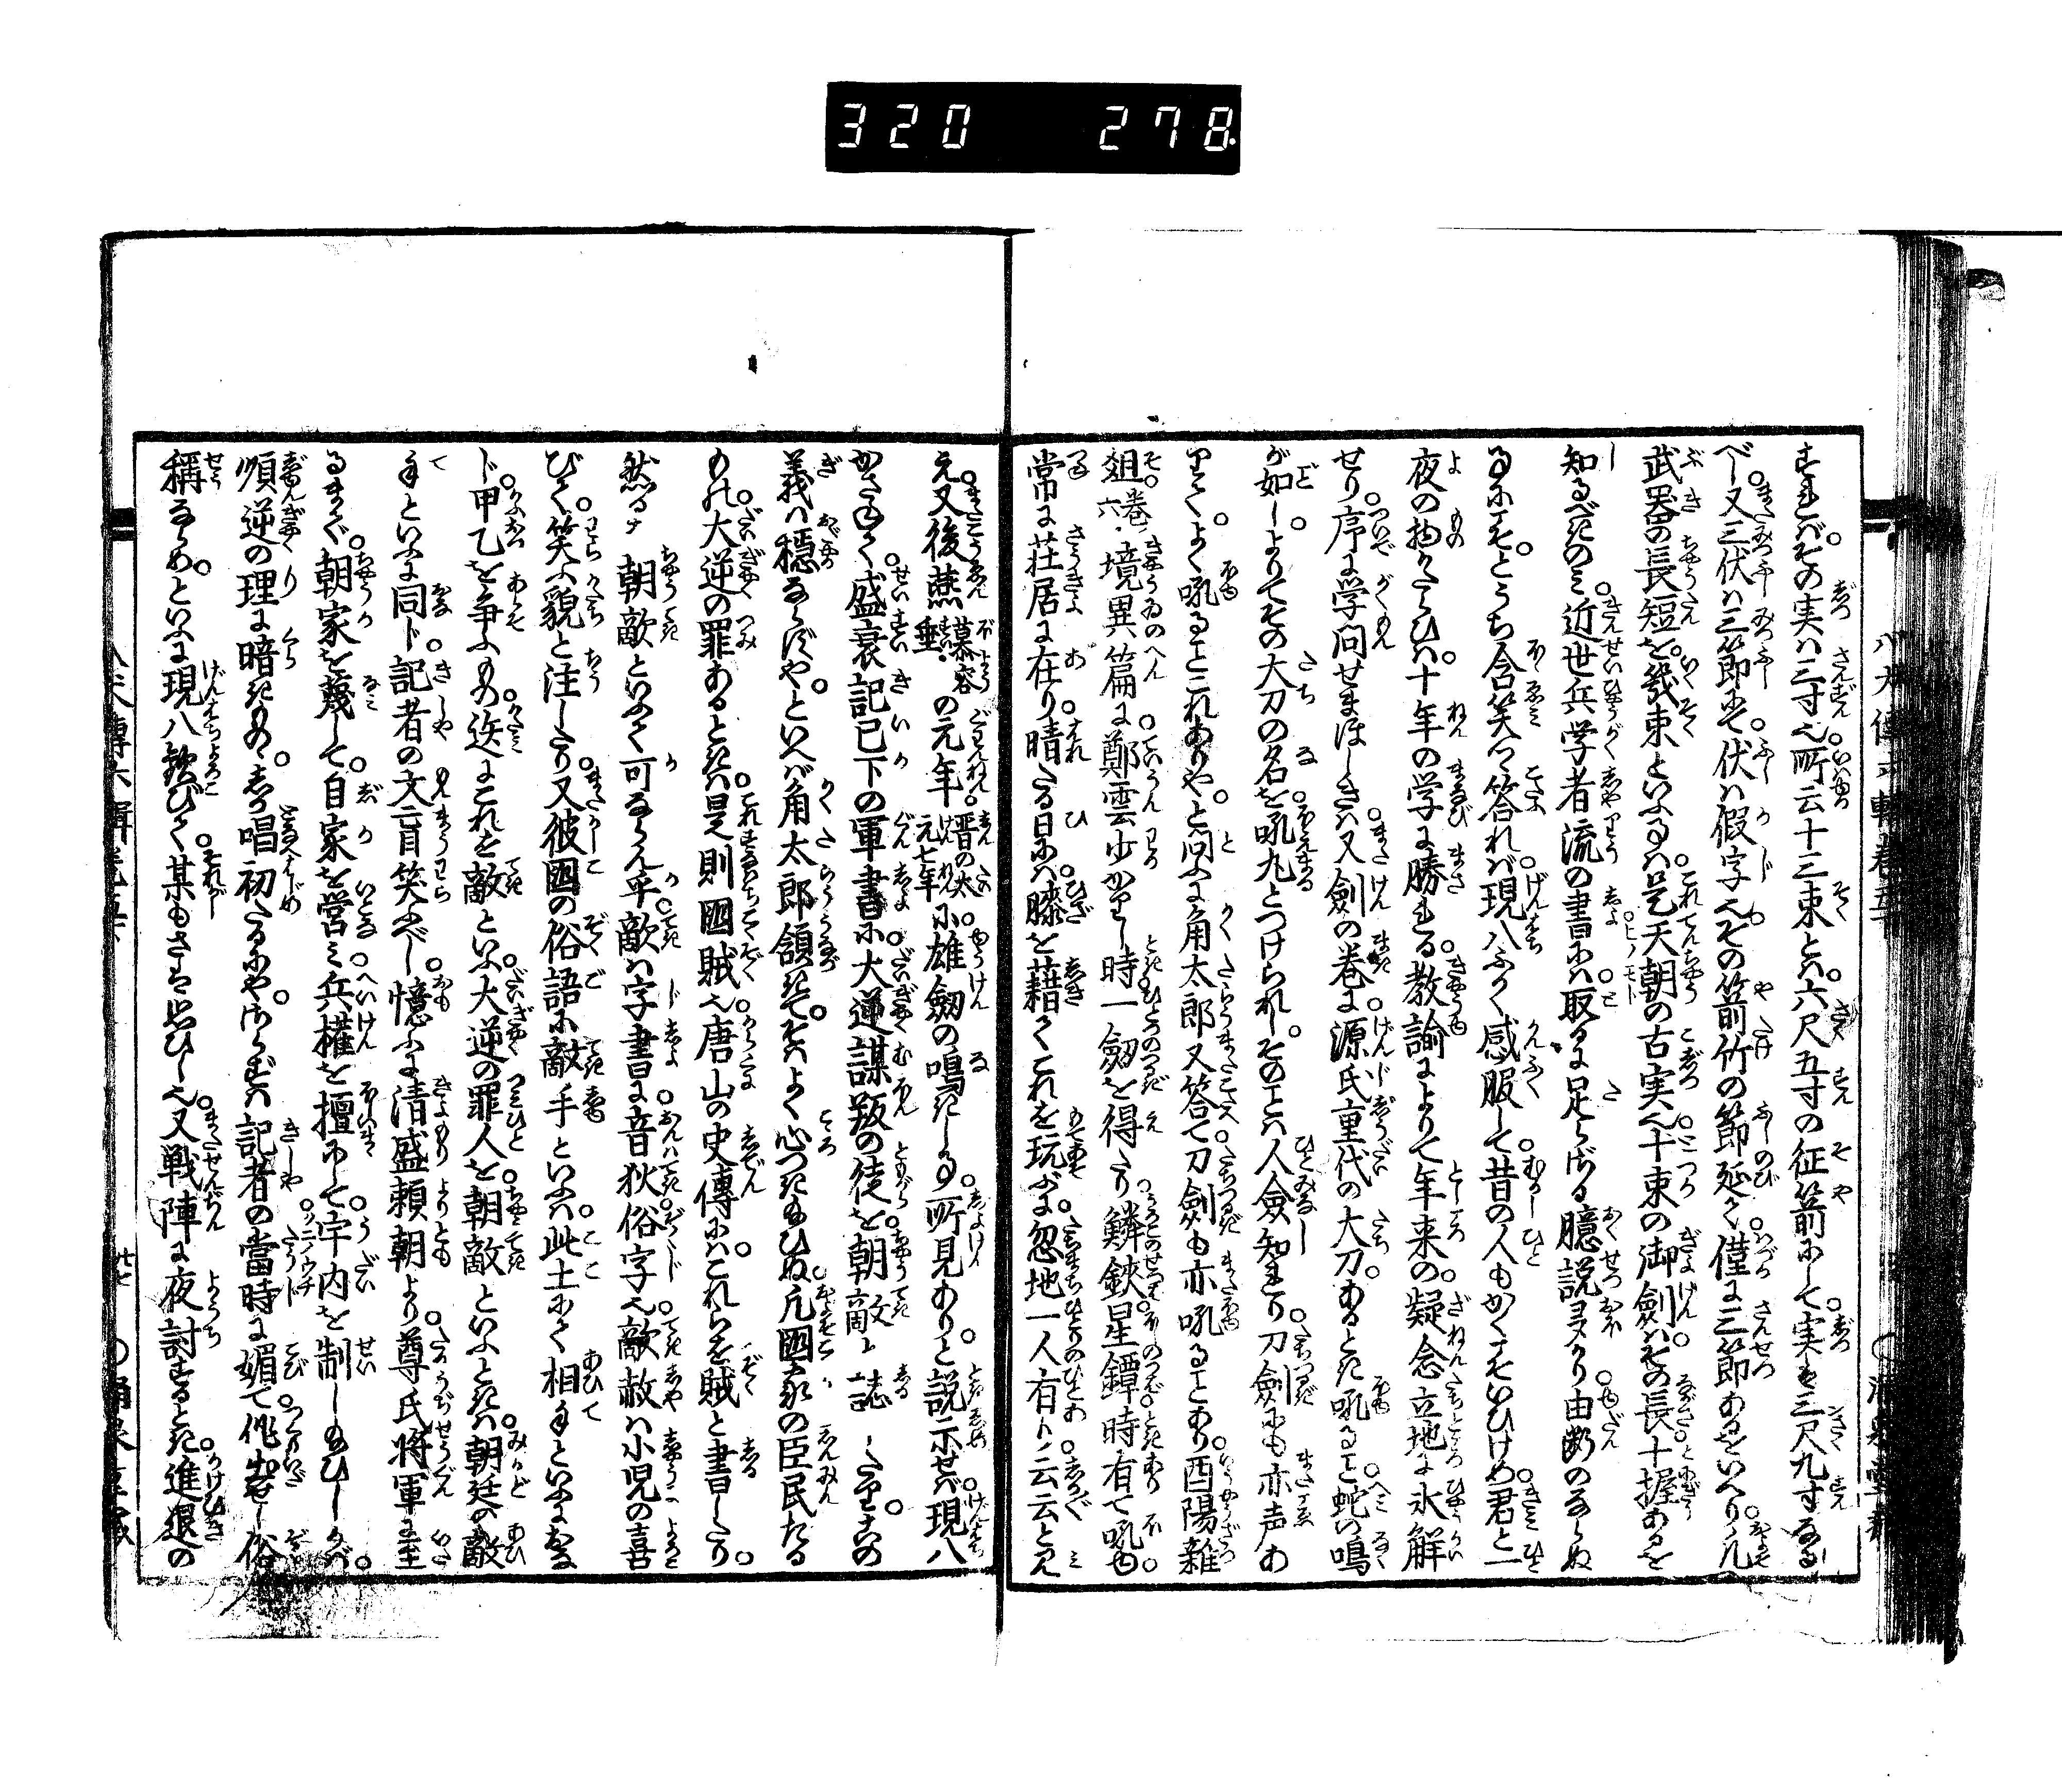 320 278
すればその実は三寸也所云十三束とは六尺五寸の征箭にして実は三尺九寸なる
べし又三伏は三節にて伏は假字也その箭竹の節延て僅に三節あるをいへり凡
武器の長短を幾束といふるは是天朝の古実也十束の御劍はその長十握あるを
知るべきのミ近世兵学者流の書には取るに足らざる臆説多かり由断のならぬ
るにこそとうち含笑て答れば現八ふかく感服して昔の人もかくこそいひけめ君と一
夜の物かたらひは十年の学に勝れる教諭によりて年来の疑念立地に氷解
せり序に学問せまほしきは又劍の巻に源氏重代の大刀あるとき吼ること蛇の鳴
が如しよりてその大刀の名を吼丸とつけられしそのことは人僉知れり刀劍にも亦声あ
りてよく吼ることこれありやと問ふに角太郎又答て刀劍も亦吼ることあり酉陽雜
爼巻六境異篇に鄭雲少かりし時一劒を得たり鱗鋏星鐔時有て吼ゆ
常に荘居に在り晴たる日には膝を藉てこれを玩ぶに忽地一人有ト云云と見
え又後燕慕容垂の元年晋の太元七年に雄劒の鳴きしる所見ありと説示せば現八
かさねて盛衰記已下の軍書に大逆謀叛の徒を朝敵ト誌したりこの
義は穏ならずやといへば角太郎領きてそはよく心つき給ひぬ凡國家の臣民たる
もの大逆の罪あるときは是則國賊也唐山の史傳にはこれらを賊と書したり
然るヲ朝敵といふて可ならん乎敵は字書に音狄俗字也敵赦は小児の喜
びて笑ふ貌と注したり又彼國の俗語に敵手といふは此土にて相手といふにおな
じ甲乙を争ふもの迭にこれを敵といふ大逆の罪人を朝敵といふときは朝廷の敵
手といふに同じ記者の文盲笑ふべし憶ふに清盛頼朝より尊氏将軍に至
るまで朝家を蔑して自家を営ミ兵權を擅にして宇内を制し給ひしかば
順逆の理に暗きもの しか唱初たるにや さらずは記者の當時に媚て作出せし俗
稱ならめといふに現八歓びて某もさこそ思ひし也又戦陣に夜討するとき進退の